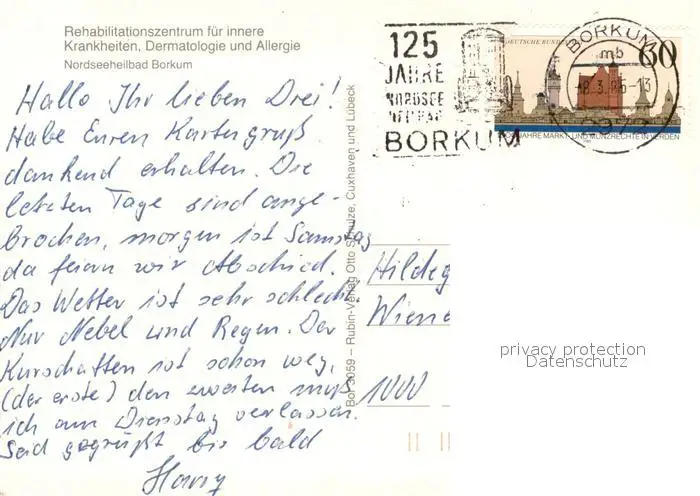 Rehabilitationszentrum für innere
Krankheiten, Dermatologie und Allergie
Nordseeheilbad Borkum
Hallo Ihr lieben Drei!
Habe Euren Kartengruß
dankend erhalten. Die
letzten Tage sind ange-
brochen, morgen ist Samstag
da feiern wir Abschied.
Das Wetter ist sehr schlecht
Nur Nebel und Regen. Der
Kurschatten ist schon weg,
(der erste) den zweiten muß
ich am Dienstag verlassen.
Seid gegrüßt bis bald
Harry
Bor 3059 – Rubin-Verlag Otto Schulze, Cuxhaven und Lübeck
125
JAHRE
NORDSEE
HEILBAD
BORKUM
DEUTSCHE BUND
60
JAHRE MARKT- UND MÜNZRECHTE IN VERDEN
BORKUM
mb
Hildeg
Wiene
1000
privacy protection
Datenschutz